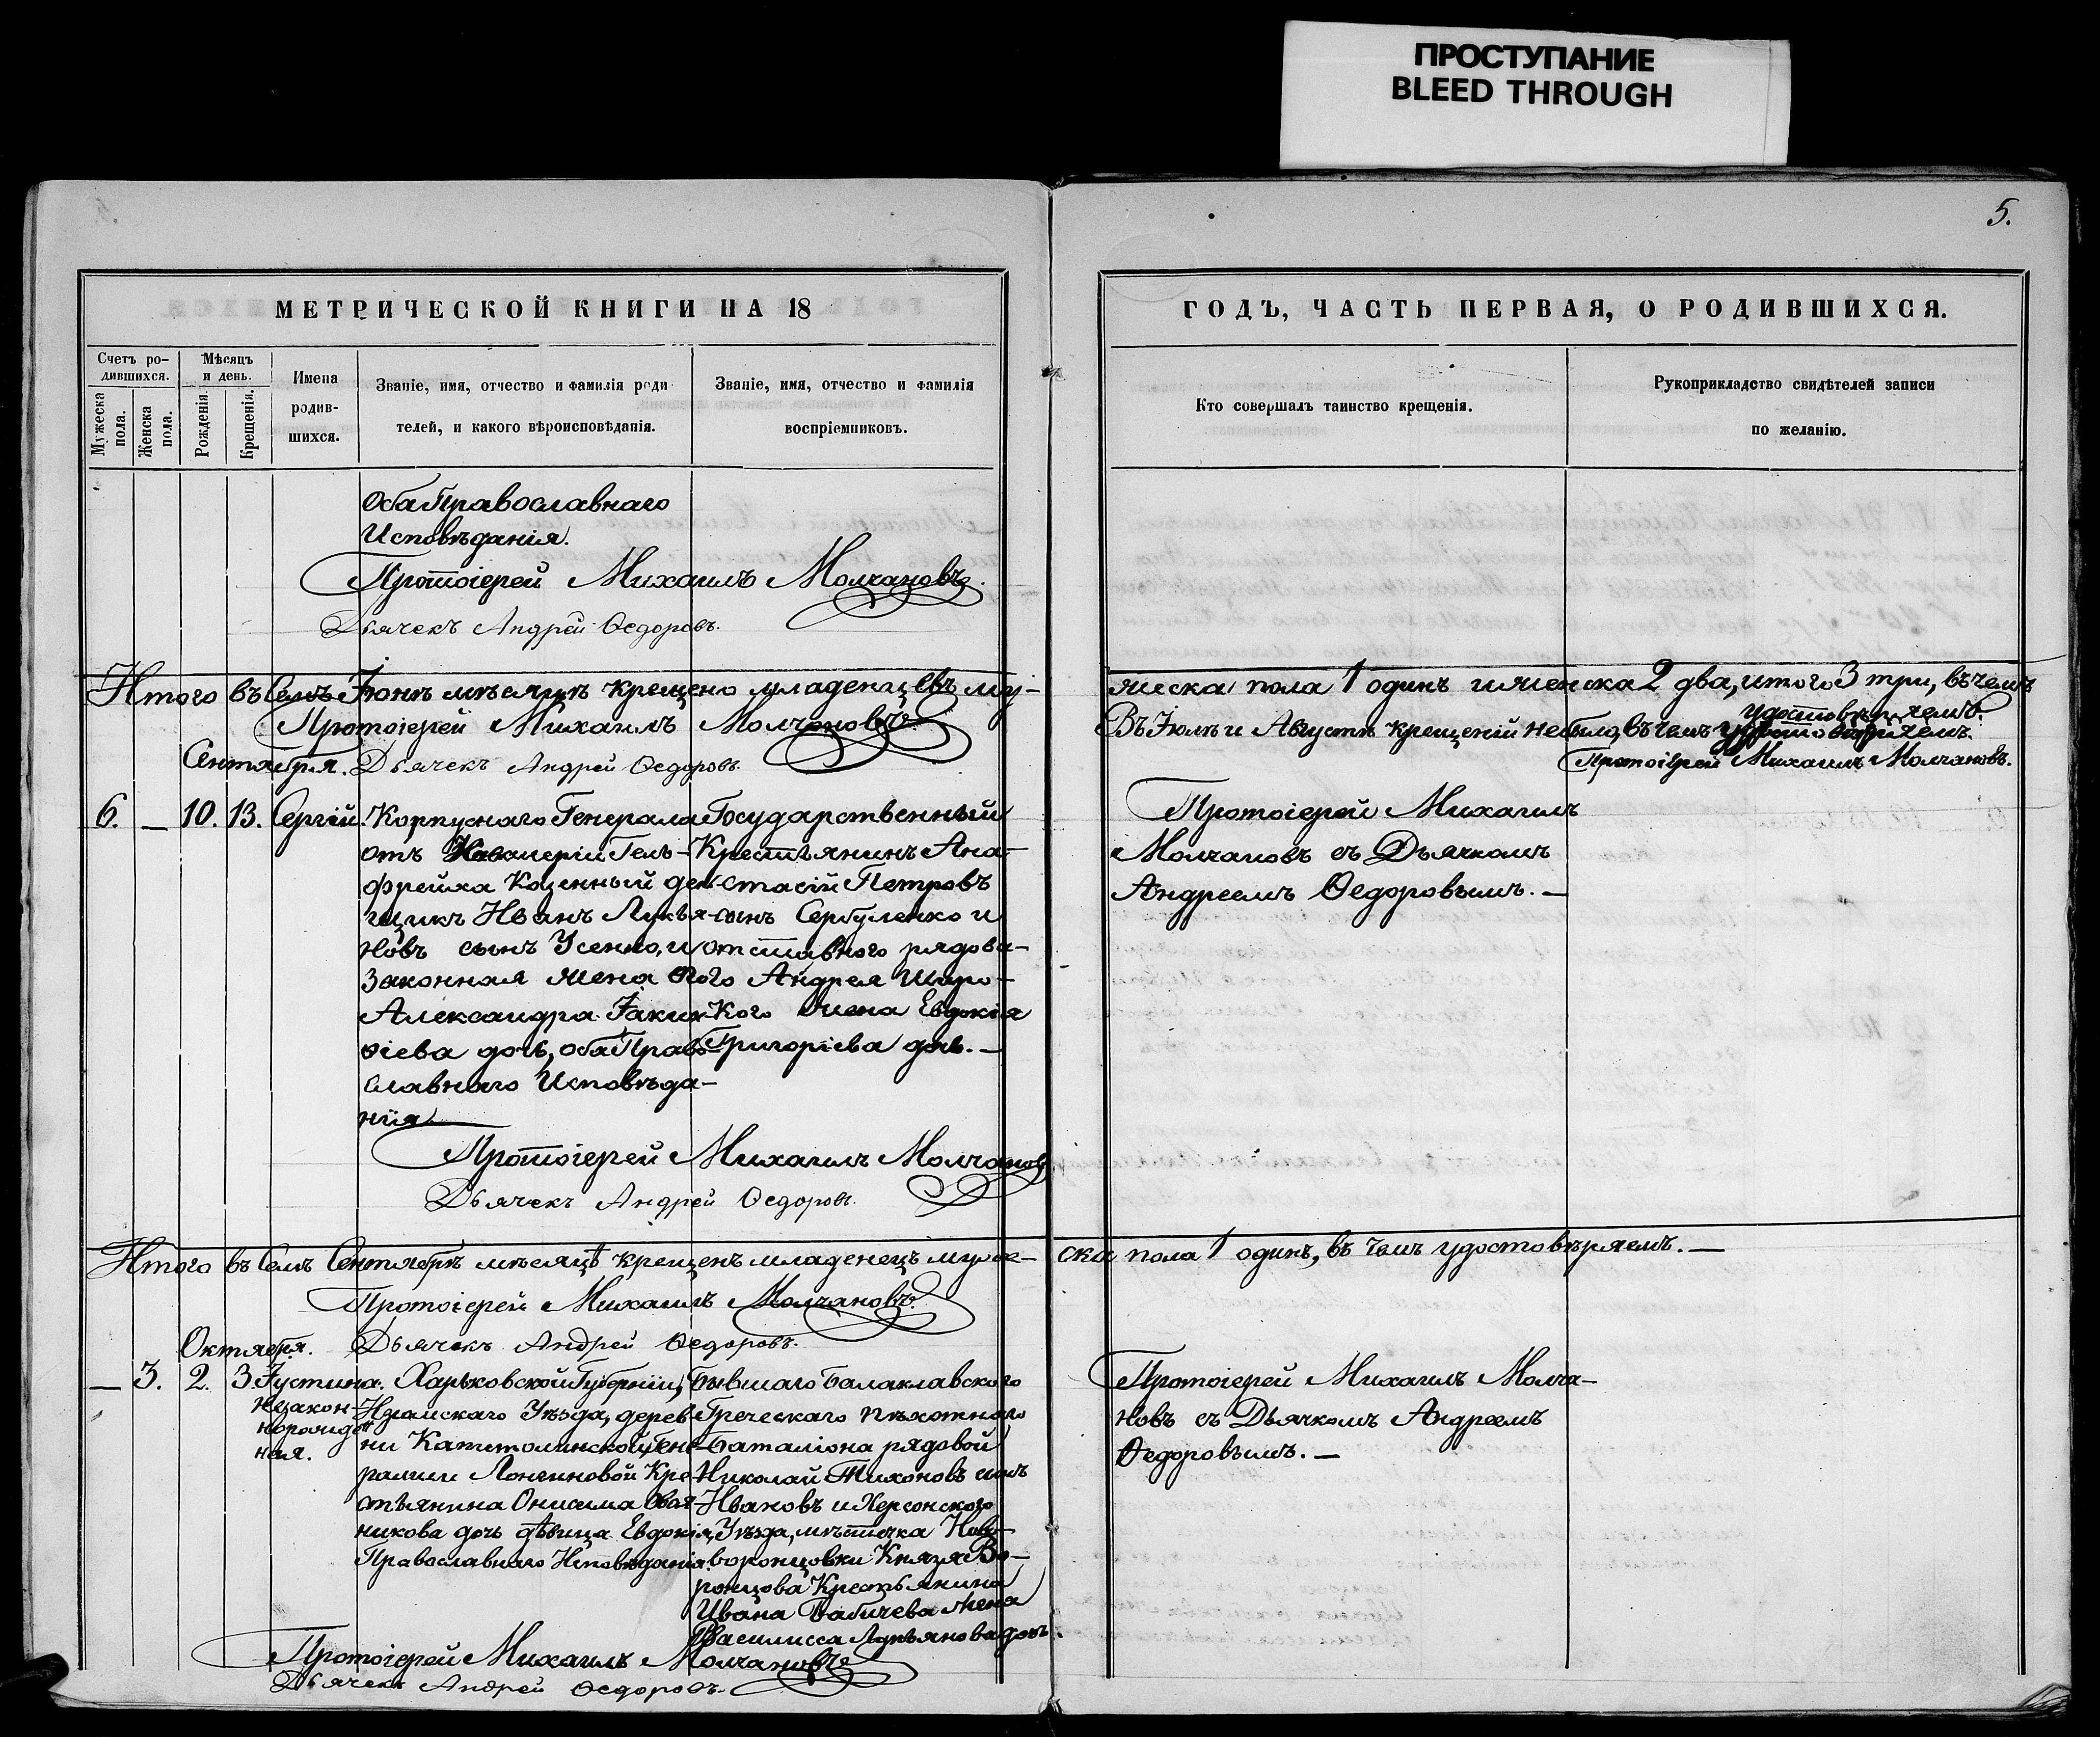 ПРОСТУПАНИЕ
BLEED THROUGH
5.
МЕТРИЧЕСКОЙ КНИГИ НА 18
Счетъ ро-
дившихся.
Мужеска пола.
Женска пола.
Мѣсяцъ
и день.
Рожденія.
Крещенія.
Имена
родив-
шихся.
Званіе, имя, отчество и фамилія роди
телей, и какого вѣроисповѣданія.
Званіе, имя, отчество и фамилія
воспріемниковъ.
Оба Православнаго
Исповѣданія.
Протоіерей Михаилъ Молчановъ.
Дьячекъ Андрей Ѳедоровъ.
Итого въ Семъ Іюнѣ мѣсяцѣ крещено младенцевъ му-
Протоіерей Михаилъ Молчановъ
Сентября. Дьячекъ Андрей Ѳедоровъ.
6. — 10. 13. Сергій.
Корпуснаго Генерала
отъ Кавалеріи Гель-
фрейха Казенный ден-
щикъ Иванъ Лукья-
новъ сынъ Усенко, и
Законная жена его
Александра Іакин-
ѳіева дочь, оба Право-
славнаго Исповѣда-
нія
Государственный
Крестьянинъ Ана-
стасій Петровъ
сынъ Сербуленко и
отставного рядова-
го Андрея Широ-
кого жена Евдокія
Григоріева дочь. —
Протоіерей Михаилъ Молчановъ
Дьячекъ Андрей Ѳедоровъ.
Итого въ Семъ Сентябрѣ мѣсяцѣ крещенъ младенецъ муже-
Протоіерей Михаилъ Молчановъ.
Октября. Дьячекъ Андрей Ѳедоровъ.
— 3. 2. 3 Іустина.
незакон-
норожде
ная.
Харьковской Губерніи,
Изюмскаго Уѣзда, дерев
ни Гене-
ралши Кре-
стьянина Онисима
никова дочь дѣвица Евдокія,
Православнаго Исповѣданія.
Бывшаго Балаклавского
Греческаго пѣхотнаго
Баталіона рядовой
Николай Тихоновъ сынъ
Ивановъ и Херсонскаго
Уѣзда, мѣстечка Ново-
воронцовки Князя Во-
ронцова Крестьянина
Ивана Бабичева жена
Василисса Лукьянова дочь.
Протоіерей Михаилъ Молчановъ
Дьячекъ Андрей Ѳедоровъ.
ГОДЪ, ЧАСТЬ ПЕРВАЯ, О РОДИВШИХСЯ.
Кто совершалъ таинство крещенія.
Рукоприкладство свидѣтелей записи
по желанію.
жеска пола 1 одинъ и женска 2 два, итого 3 три, въ чемъ
удостовѣряемъ.
Въ Іюлѣ и Августѣ крещеній не было, въ чемъ удостовѣряемъ.
Протоіерей Михаилъ Молчановъ.
Протоіерей Михаилъ
Молчановъ съ Дьячкомъ
Андреемъ Ѳедоровымъ. —
ска пола 1 одинъ, въ чемъ удостовѣряемъ. —
Протоіерей Михаилъ Молча-
новъ съ Дьячкомъ Андреемъ
Ѳедоровымъ. —